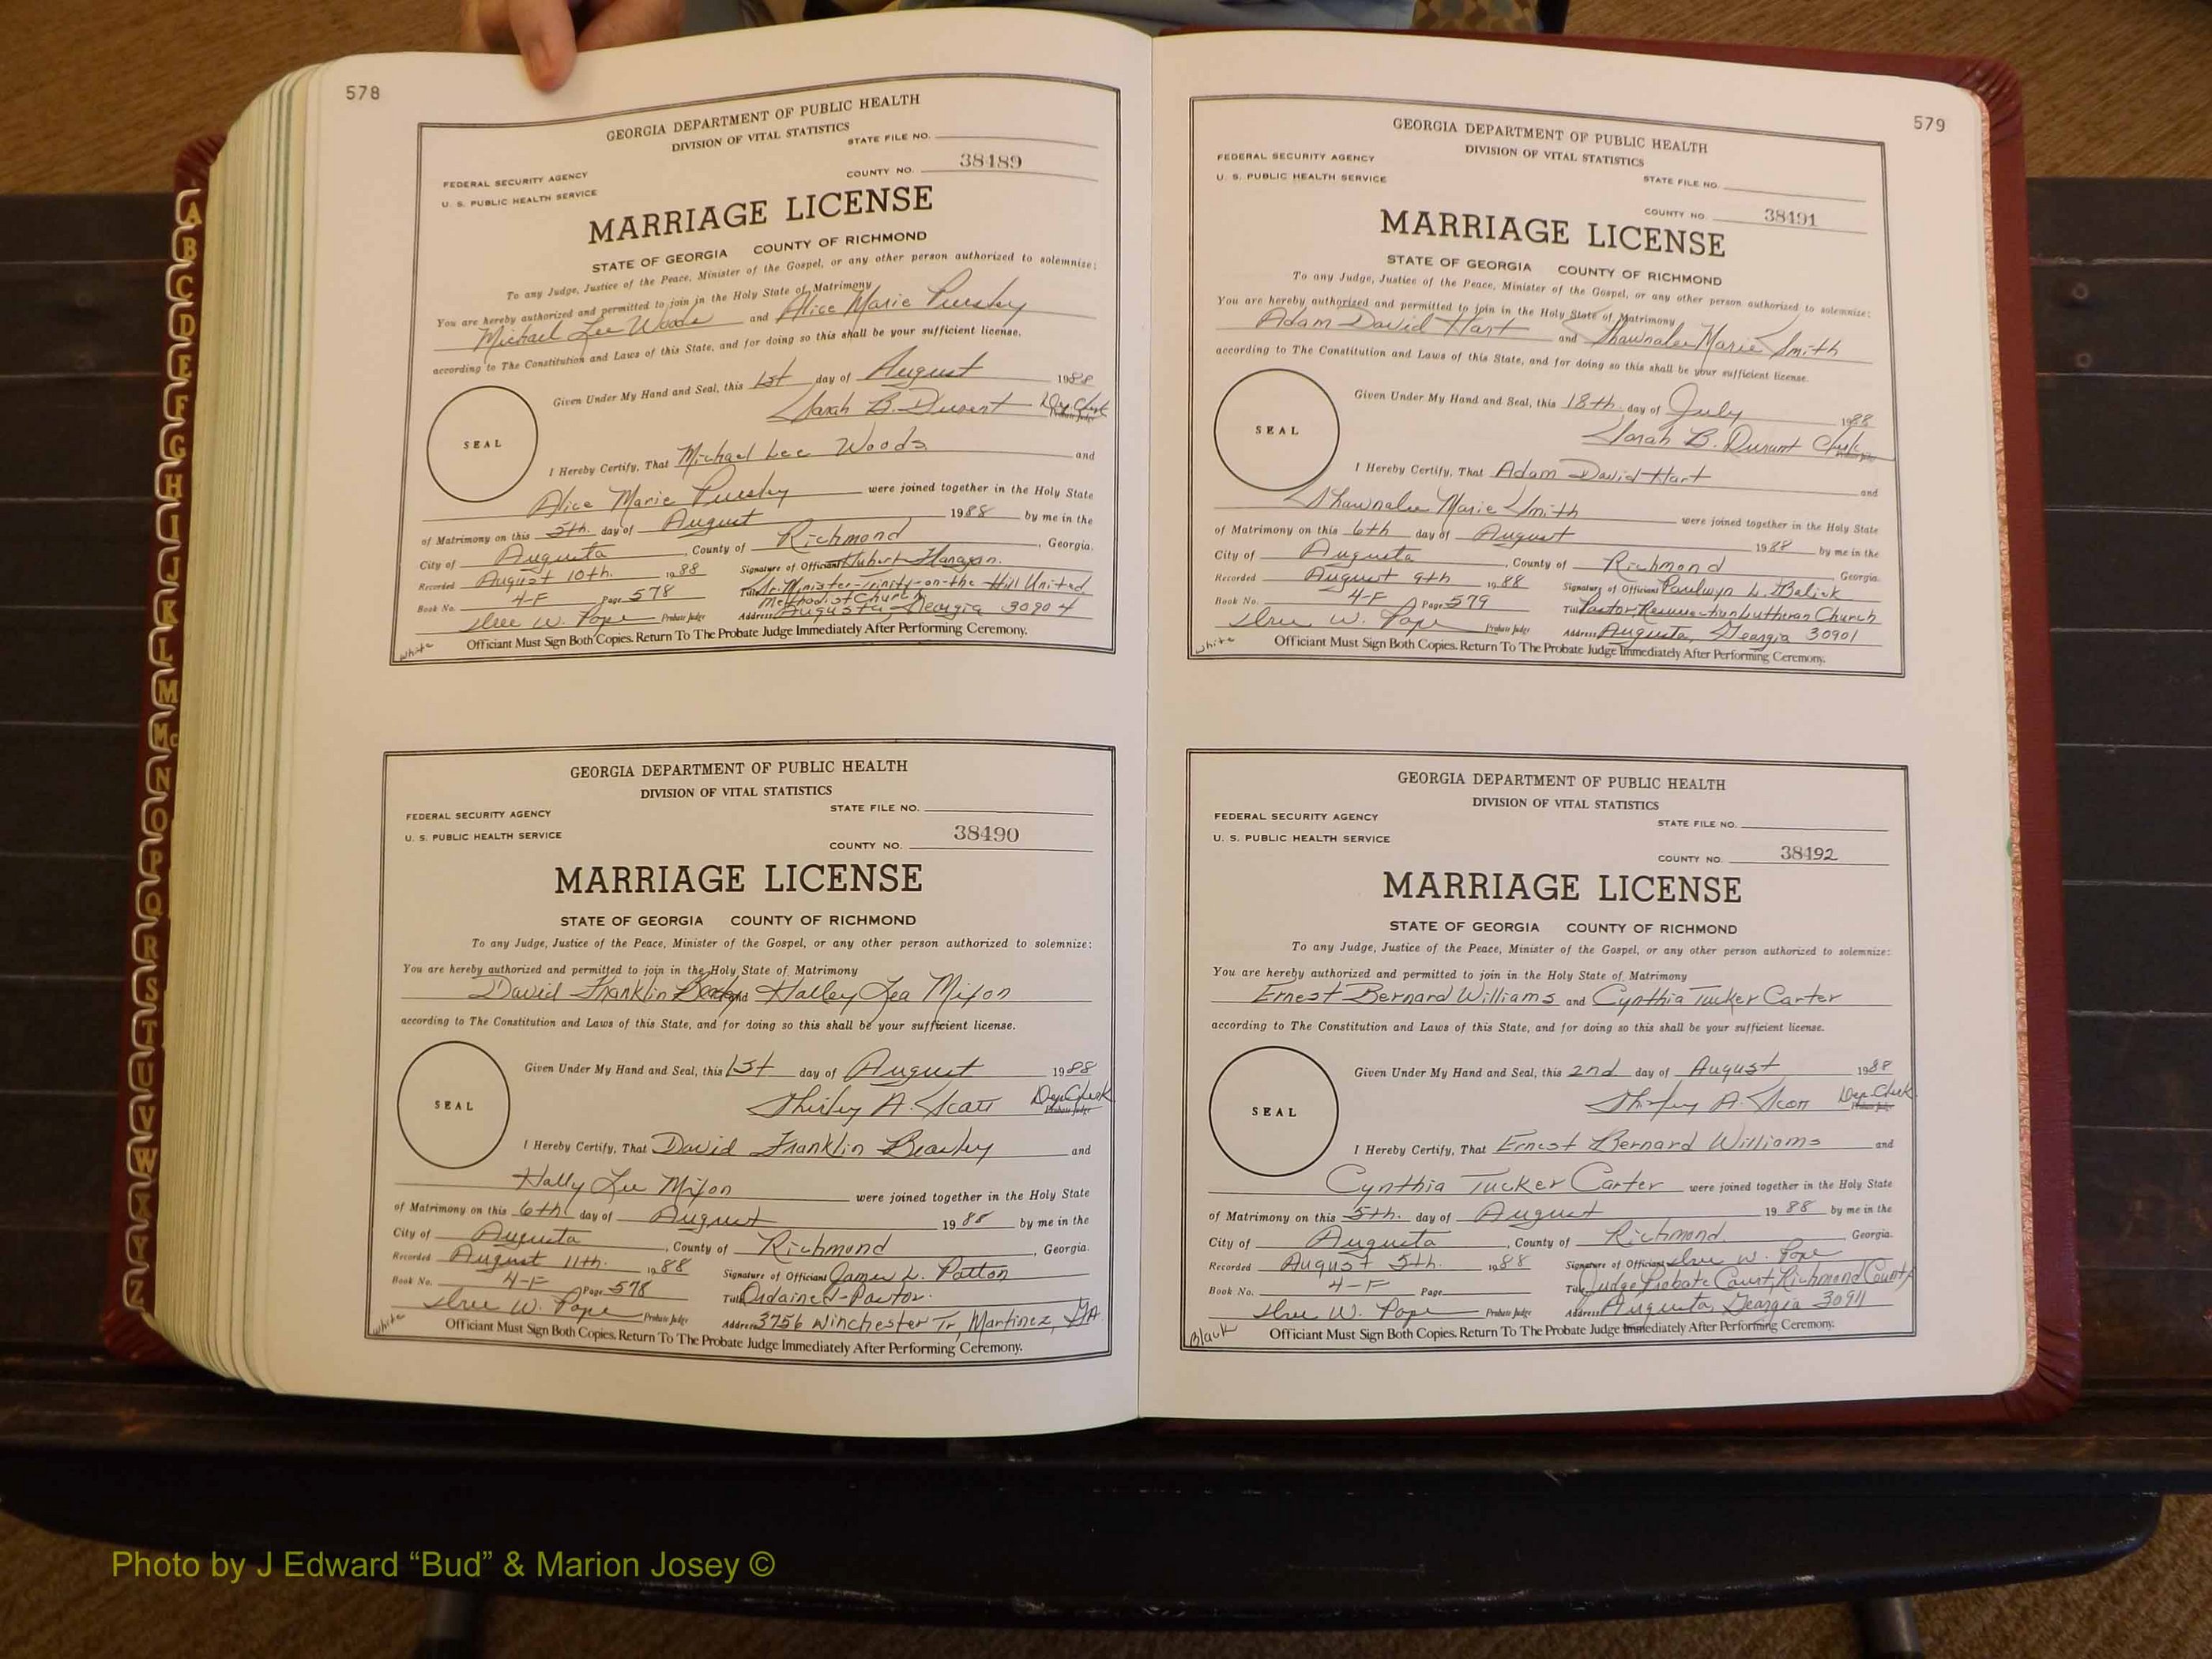 578
GEORGIA DEPARTMENT OF PUBLIC HEALTH
DIVISION OF VITAL STATISTICS
STATE FILE NO.
FEDERAL SECURITY AGENCY
COUNTY NO. 38489
U. S. PUBLIC HEALTH SERVICE
MARRIAGE LICENSE
STATE OF GEORGIA COUNTY OF RICHMOND
To any Judge, Justice of the Peace, Minister of the Gospel, or any other person authorized to solemnize:
You are hereby authorized and permitted to join in the Holy State of Matrimony
Michael Lee Woods and Alice Marie Pursley
according to The Constitution and Laws of this State, and for doing so this shall be your sufficient license.
Given Under My Hand and Seal, this 1st day of August 1988
Sarah B. Durant Dep Clerk
Probate Judge
SEAL
I Hereby Certify, That Michael Lee Woods and
Alice Marie Pursley were joined together in the Holy State
of Matrimony on this 5th. day of August 1988 by me in the
City of Augusta, County of Richmond, Georgia.
Recorded August 10th. 1988 Signature of Officiant Hubert Flanagan.
Book No. 4-F Page 578 Title Sr. Minister-Trinity-on-the-Hill United
Methodist Church
Iree W. Pope Probate Judge Address Augusta, Georgia 30904
White Officiant Must Sign Both Copies. Return To The Probate Judge Immediately After Performing Ceremony.
GEORGIA DEPARTMENT OF PUBLIC HEALTH
DIVISION OF VITAL STATISTICS
FEDERAL SECURITY AGENCY STATE FILE NO.
U. S. PUBLIC HEALTH SERVICE
COUNTY NO. 38490
MARRIAGE LICENSE
STATE OF GEORGIA COUNTY OF RICHMOND
To any Judge, Justice of the Peace, Minister of the Gospel, or any other person authorized to solemnize:
You are hereby authorized and permitted to join in the Holy State of Matrimony
David Franklin and Halley Lea Mixon
according to The Constitution and Laws of this State, and for doing so this shall be your sufficient license.
Given Under My Hand and Seal, this 1st day of August 1988
Shirley A. Scott Dep Clerk
Probate Judge
SEAL
I Hereby Certify, That David Franklin Beasley and
Hally Lee Mixon were joined together in the Holy State
of Matrimony on this 6th day of August 1988 by me in the
City of Augusta, County of Richmond, Georgia.
Recorded August 11th. 1988 Signature of Officiant James L. Patton
Book No. 4-F Page 578 Title Ordained-Pastor.
Iree W. Pope Probate Judge Address 3756 Winchester Tr, Martinez, GA
White Officiant Must Sign Both Copies. Return To The Probate Judge Immediately After Performing Ceremony.
579
GEORGIA DEPARTMENT OF PUBLIC HEALTH
DIVISION OF VITAL STATISTICS
FEDERAL SECURITY AGENCY
U. S. PUBLIC HEALTH SERVICE STATE FILE NO.
COUNTY NO. 38491
MARRIAGE LICENSE
STATE OF GEORGIA COUNTY OF RICHMOND
To any Judge, Justice of the Peace, Minister of the Gospel, or any other person authorized to solemnize:
You are hereby authorized and permitted to join in the Holy State of Matrimony
Adam David Hart and Shawnalee Marie Smith
according to The Constitution and Laws of this State, and for doing so this shall be your sufficient license.
Given Under My Hand and Seal, this 18th day of July 1988
Sarah B. Durant Clerk
Probate Judge
SEAL
I Hereby Certify, That Adam David Hart and
Shawnalee Marie Smith were joined together in the Holy State
of Matrimony on this 6th day of August 1988 by me in the
City of Augusta, County of Richmond Georgia.
Recorded August 9th 1988 Signature of Officiant Paulwyn L. Balick
Book No. 4-F Page 579 Title Pastor, Resurrection Lutheran Church
Iree W. Pope Probate Judge Address Augusta, Georgia 30901
White Officiant Must Sign Both Copies. Return To The Probate Judge Immediately After Performing Ceremony.
GEORGIA DEPARTMENT OF PUBLIC HEALTH
DIVISION OF VITAL STATISTICS
FEDERAL SECURITY AGENCY STATE FILE NO.
U. S. PUBLIC HEALTH SERVICE
COUNTY NO. 38492
MARRIAGE LICENSE
STATE OF GEORGIA COUNTY OF RICHMOND
To any Judge, Justice of the Peace, Minister of the Gospel, or any other person authorized to solemnize:
You are hereby authorized and permitted to join in the Holy State of Matrimony
Ernest Bernard Williams and Cynthia Tucker Carter
according to The Constitution and Laws of this State, and for doing so this shall be your sufficient license.
Given Under My Hand and Seal, this 2nd day of August 1988
Shirley A. Scott Dep Clerk
Probate Judge
SEAL
I Hereby Certify, That Ernest Bernard Williams and
Cynthia Tucker Carter were joined together in the Holy State
of Matrimony on this 5th. day of August 1988 by me in the
City of Augusta, County of Richmond. Georgia.
Recorded August 5th. 1988 Signature of Officiant Iree W. Pope
Book No. 4-F Page Title Judge Probate Court, Richmond County
Iree W. Pope Probate Judge Address Augusta, Georgia 30911
Black Officiant Must Sign Both Copies. Return To The Probate Judge Immediately After Performing Ceremony.
A
B
C
D
E
F
G
H
I
J
K
L
M
Mc
N
O
P
Q
R
S
T
U
V
W
X
Y
Z
Photo by J Edward “Bud” & Marion Josey ©